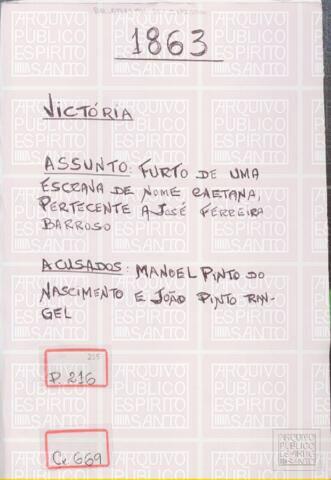 1863
VICTÓRIA
ASSUNTO: FURTO DE UMA
ESCRAVA DE NOME CAETANA,
PERTECENTE A JOSÉ FERREIRA
BARROSO
ACUSADOS: MANOEL PINTO DO
NASCIMENTO E JOÃO PINTO RAN-
GEL
215
P. 216
Cx. 669
ARQUIVO
PÚBLICO
ESPÍRITO
SANTO